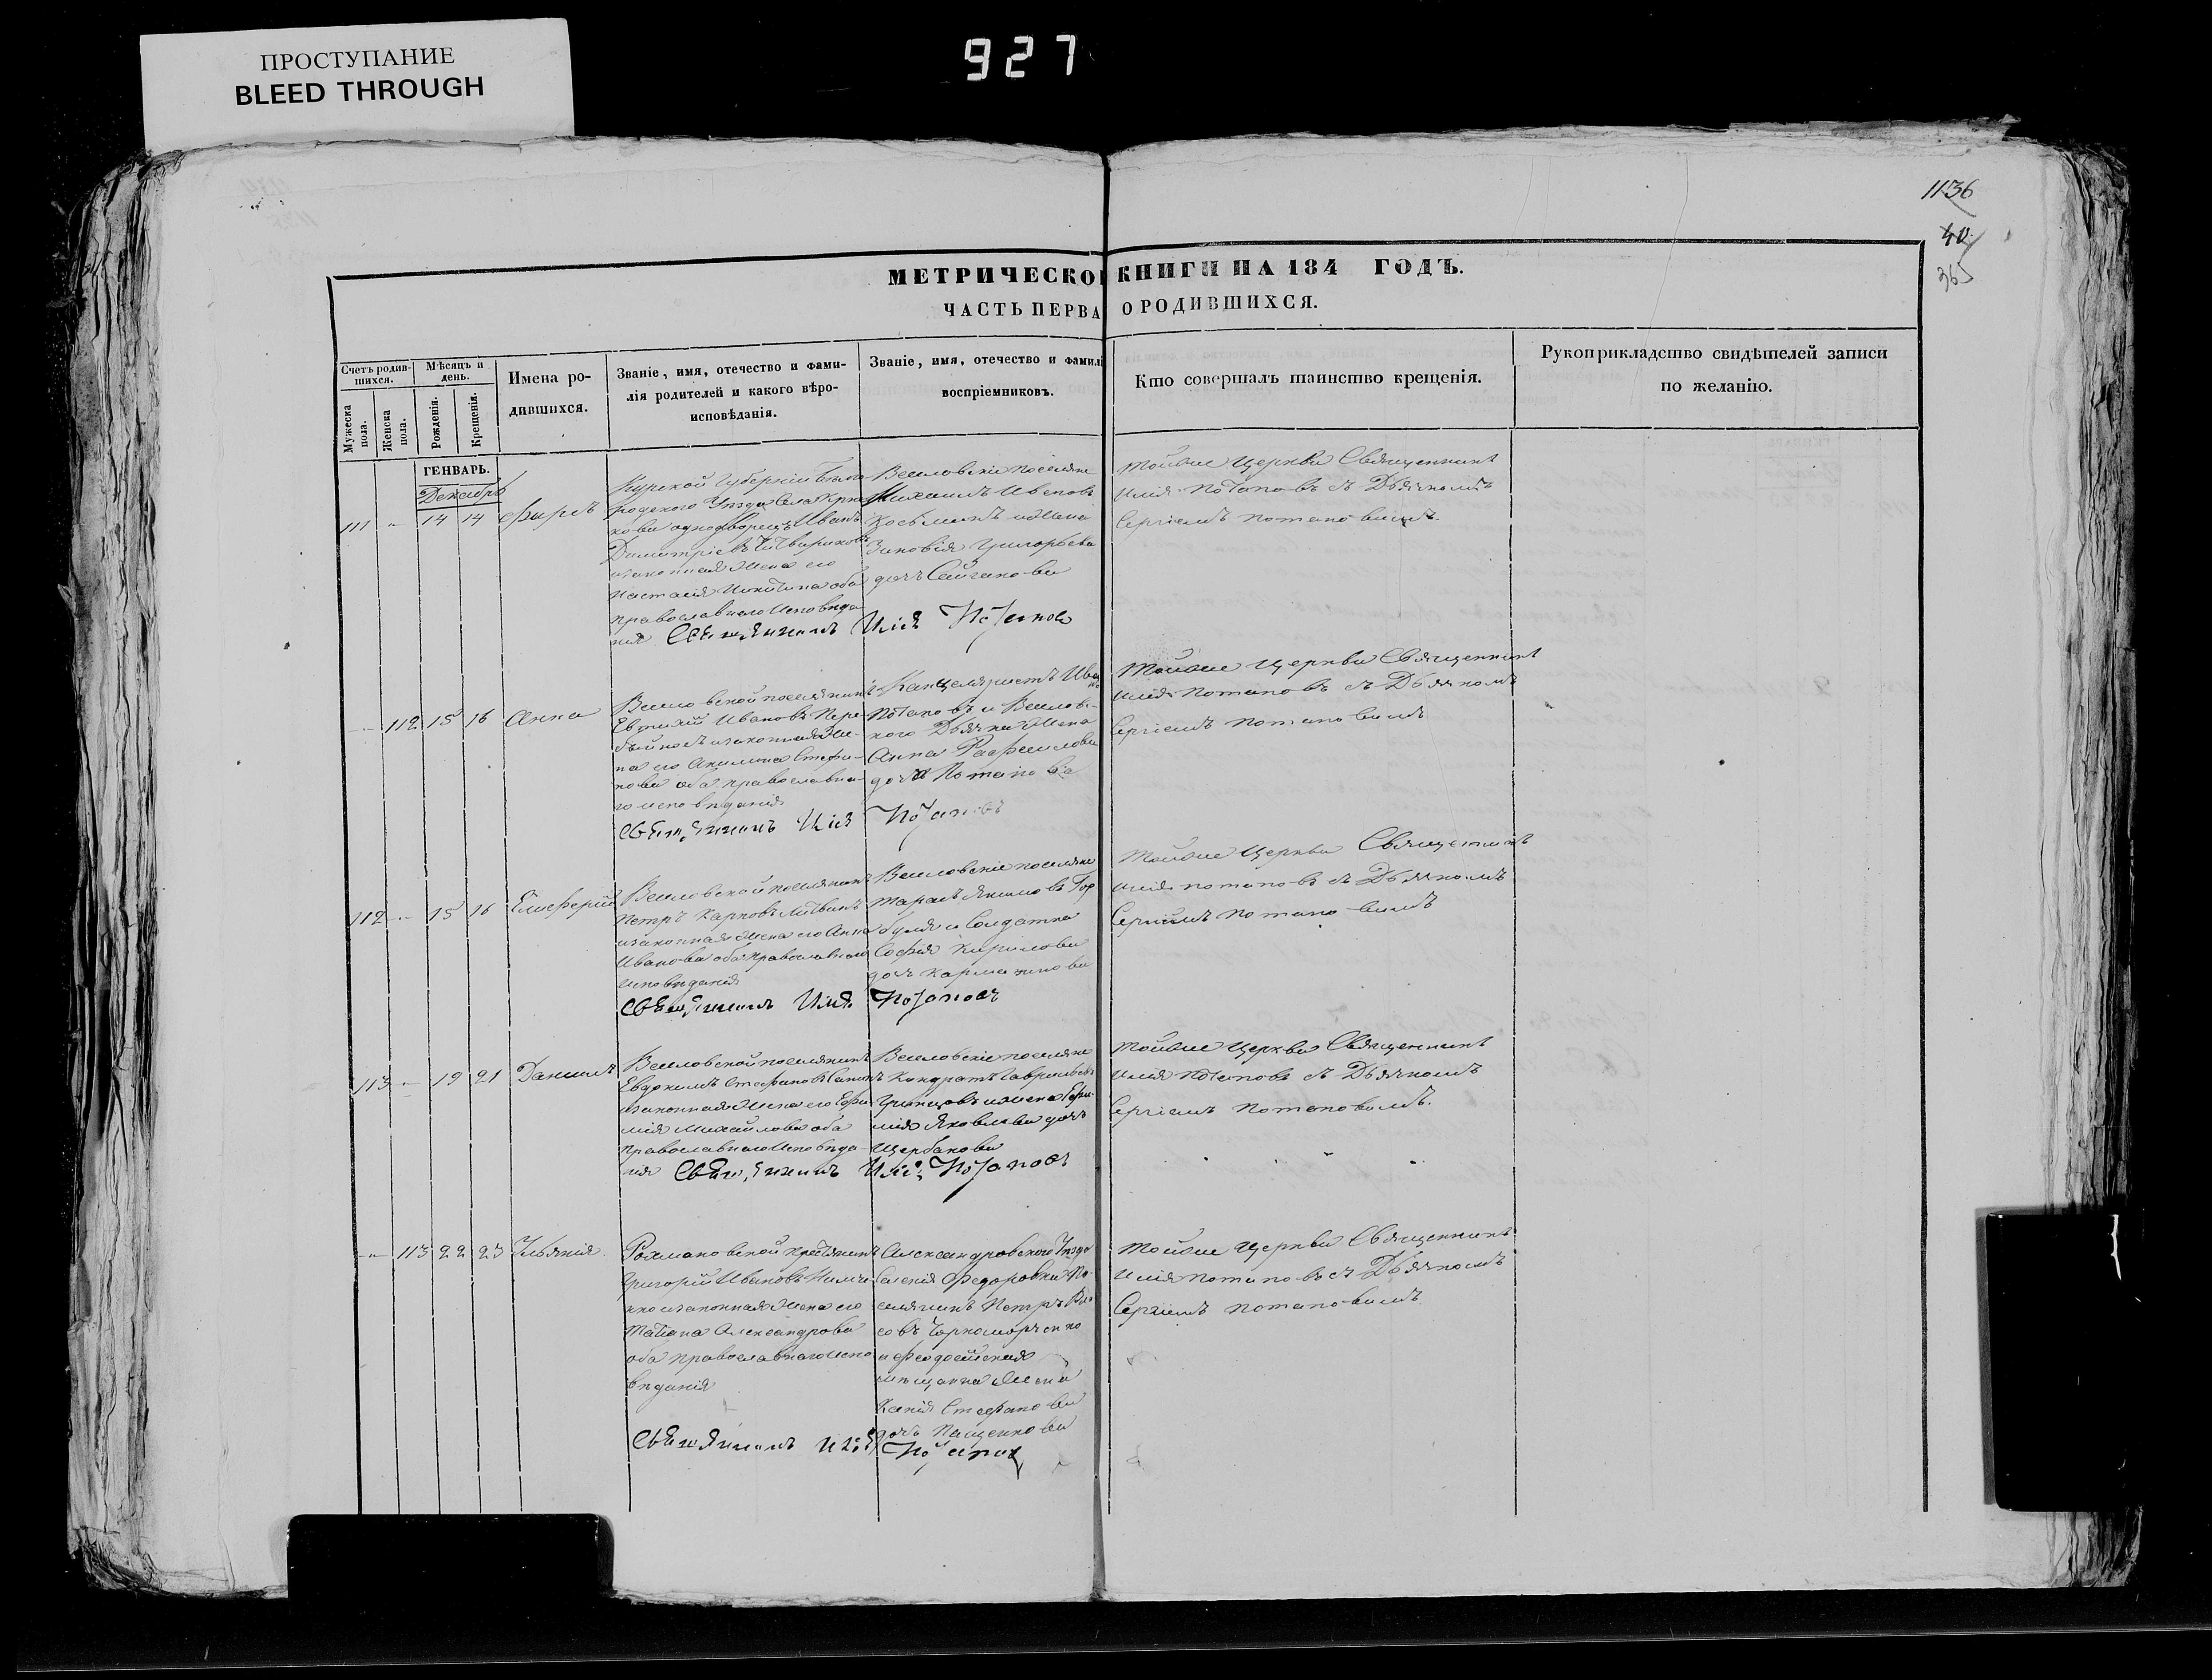 ПРОСТУПАНИЕ
BLEED THROUGH
927
1136
40
365
МЕТРИЧЕСКО КНИГИ НА 184 ГОДЪ.
ЧАСТЬ ПЕРВА О РОДИВШИХСЯ.
Счетъ родив-
шихся.
Мужеска
пола.
Женска
пола.
Мѣсяцъ и
день.
Рожденія.
Крещенія.
Имена ро-
дившихся.
Званіе, имя, отечество и фами-
лія родителей и какого вѣро-
исповѣданія.
Званіе, имя, отечество и фамилі
воспріемниковъ.
Кто совершалъ таинство крещенія.
Рукоприкладство свидѣтелей записи
по желанію.
ГЕНВАРЬ.
Декабрь
111 14 14 Фирсъ
Курской Губерніи
Уѣзда Села
однодворецъ Иванъ
Димитріевъ
изаконная Жена его
Настасія Никитина оба
православнаго исповѣда
нія Священникъ Илія Потапов
Веселовскіе поселяне
Михаилъ Ивановъ
Косьминъ иЖена
Зиновія Григорьева
дочь
Тойже Церкви Священникъ
Илія Потаповъ съ Дьячкомъ
Сергіемъ Потаповымъ.
112 15 16 Анна
Веселовской поселянинъ
Евтихій Ивановъ Пере-
изаконная Же-
на его Акилина Стефа-
нова оба православна-
го исповѣданія
Священникъ Илія Потаповъ
Канцеляристъ Иван
Потаповъ и Веселов-
кого Дьячка Жена
Анна
дочь Потапова
Тойже Церкви Священникъ
Илія Потаповъ съ Дьячкомъ
Сергіемъ Потаповымъ
112 15 16 Елевферій
Веселовской поселянинъ
Петръ Карповъ Литвинъ
изаконная Жена его Анна
Иванова оба православнаго
исповѣданія
Священникъ Илія Потаповъ
Веселовскіе поселяне
Тарасъ Якимовъ Гор
и Солдатка
Софія Кирилова
дочь
Тойже Церкви Священникъ
Илія Потаповъ съ Дьячкомъ
Сергіемъ Потаповымъ
113 19 21 Даніилъ
Веселовской поселянинъ
Евдокимъ Стефановъ
изаконная Жена его Евфи-
мія Михайлова оба
православнаго исповѣда-
нія Священникъ Илія Потаповъ
Веселовскіе поселяне
Кондратъ Гавриловъ
иЖена Евфи-
мія Яковлева дочь
Щербакова
Тойже Церкви Священникъ
Илія Потаповъ съ Дьячкомъ
Сергіемъ Потаповымъ.
113 22 23 Ульянія
крестьянинъ
Григорій Ивановъ
изаконная Жена его
Татіана Александрова
оба православнаго испо
вѣданія
Священникъ Илія Потапов
Александровского Уѣзда
Селенія Федоровки По-
селянинъ Петръ Вла
совъ Чорноморченко
и Феодосійская
мѣщанка Жена
Ксенія Стефанова
дочь Пащенкова
Тойже Церкви Священникъ
Илія Потаповъ съ Дьячкомъ
Сергіемъ Потаповымъ